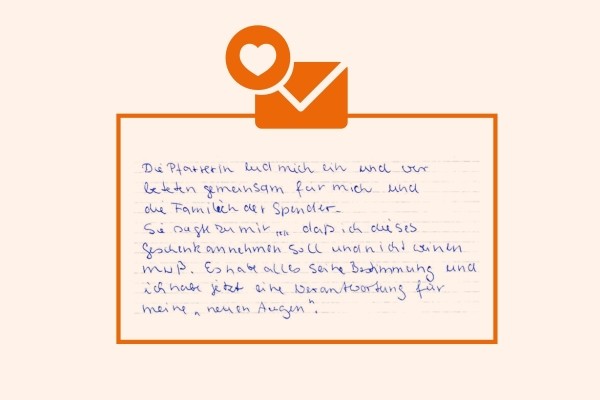 Die Pfarrerin lud mich ein und wir
beteten gemeinsam für mich und
die Familien der Spender.
Sie sagte zu mir „„ daß ich dieses
Geschenk annehmen soll und nicht weinen
muß. Es habe alles seine Bestimmung und
ich habe jetzt eine Verantwortung für
meine „neuen Augen".